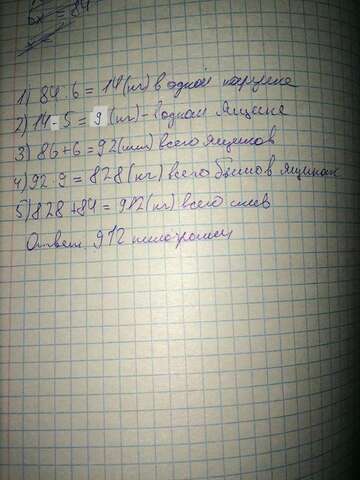 6x = 84
1) 84:6 = 14 (кг) в одной корзине
2) 14-5 = 9 (кг) - в одном ящике
3) 86+6 = 92 (шт) всего ящиков
4) 92·9 = 828 (кг) всего было в ящиках
5) 828+84 = 912 (кг) всего слив
Ответ: 912 килограмм